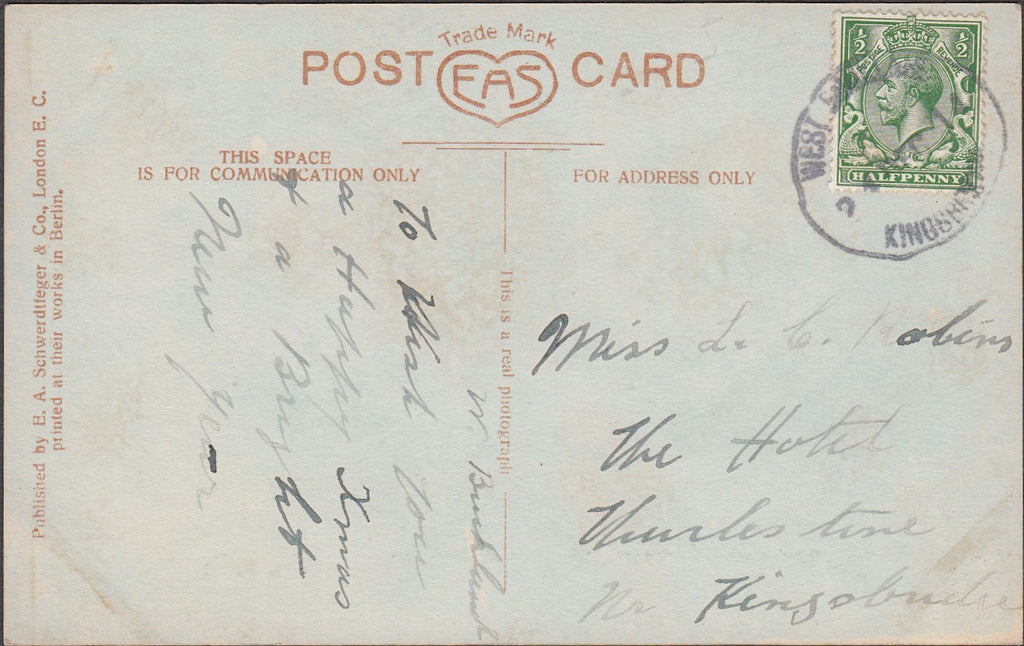 Trade Mark
POST CARD
EAS
THIS SPACE
IS FOR COMMUNICATION ONLY
FOR ADDRESS ONLY
Published by E. A. Schwerdtfeger & Co., London E. C.
printed at their works in Berlin.
This is a real photograph
To Wish you
a Happy Xmas
& a Bright
New year
W. Buckland
Miss L. C. Robins
The Hotel
Thurlestone
Nr Kingsbridge
½ ½
POSTAGE REVENUE
HALFPENNY
WEST
KINGSBRIDGE